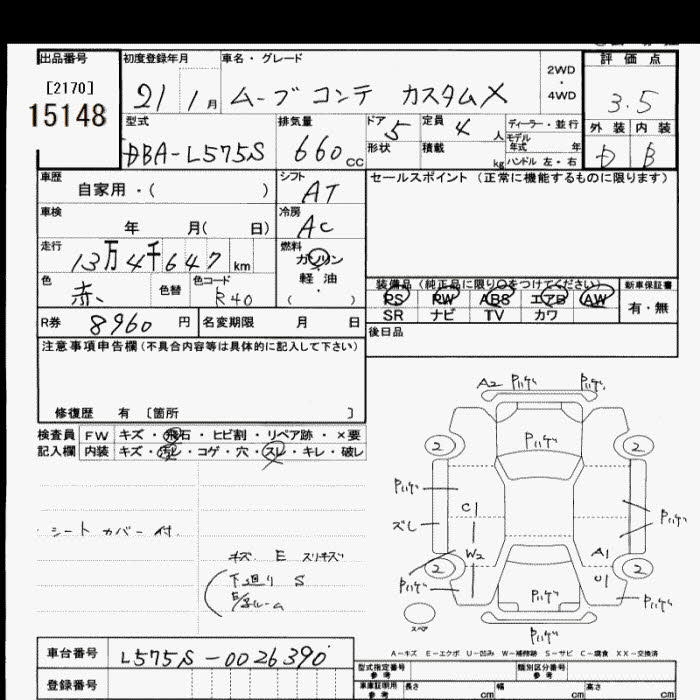 出品番号
[2170]
15148
初度登録年月
21 1月
車名・グレード
ムーブ コンテ カスタムX
2WD
・
4WD
評価点
3.5
外装 内装
D B
型式
DBA-L575S
排気量
660 CC
ドア 5
形状
定員 4 人
積載 kg
ディーラー・並行
モデル
年式 年
ハンドル 左・右
車歴
自家用・( )
シフト
AT
セールスポイント (正常に機能するものに限ります)
車検
年 月( 日)
冷房
AC
走行
13万4千647km
燃料
ガソリン
・
軽油
( )
色
赤
色替
色コード
R40
装備品 (純正品に限り○をつけてください)
PS PW ABS エアB AW
SR ナビ TV カワ
新車保証書
有・無
R券 8960 円
名変期限 月 日
後日品
注意事項申告欄(不具合内容等は具体的に記入して下さい)
修復歴 有 〔箇所 〕
検査員
記入欄
FW キズ・飛石・ヒビ割・リペア跡・×要
内装 キズ・汚レ・コゲ・穴・スレ・キレ・破レ
・シートカバー付.
キズ E スリキズ
下廻り S
A2 Pハゲ Pハゲ
Pハゲ
2 2
Pハゲ
C1
ズレ
Pハゲ
W2
A1
2 2
U1
Pハゲ
Pハゲ
Pハゲ
Pハゲ
スペア
A-キズ E-エクボ U-凹み W-補修跡 S-サビ C-腐食 XX-交換済
車台番号
L575S-0026390
登録番号
型式指定番号
参考
類別区分番号
参考
車庫証明用
参考
長さ cm
幅 cm
高さ cm